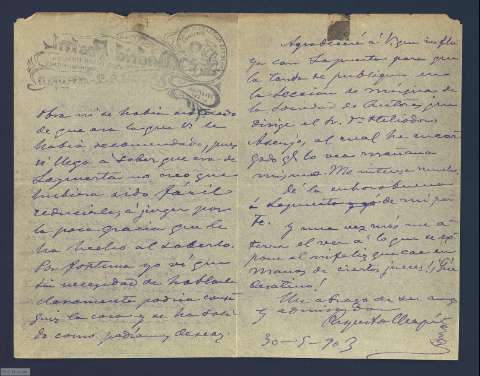 obra ni se había
de que era la que V. le
había recomendado, pues
si llega a saber que era de
Lapuerta no creo que
hubiera sido fácil
reducirles, á juzgar por
la poca gracia que le
ha hecho al saberlo.
Por fortuna yo ví que
sin necesidad de hablarle
claramente podía
la cosa y se ha
do como podíamos desear.
Agradeceré á V. que influ
ya con Lapuerta para que
la tanda de publique en
la sección de música de
la Sociedad de Autores, que
dirige el Sr. Dn. Heliodoro
Asenjo, al cual he encar
gado que lo vea mañana
mismo. Me interesa mucho.
dé la enhorabuena
á Lapuerta de mi par
te.
Y una vez más me a
terra el ver á lo que se ex
pone al infeliz que cae en
manos de ciertos jueces!
Un abrazo de su amigo
y admirador
30-5-903